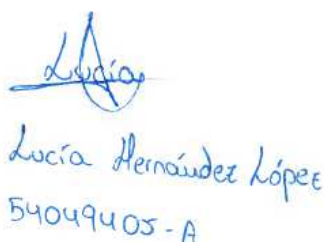 Lucía
Lucía Hernández López
54049405-A